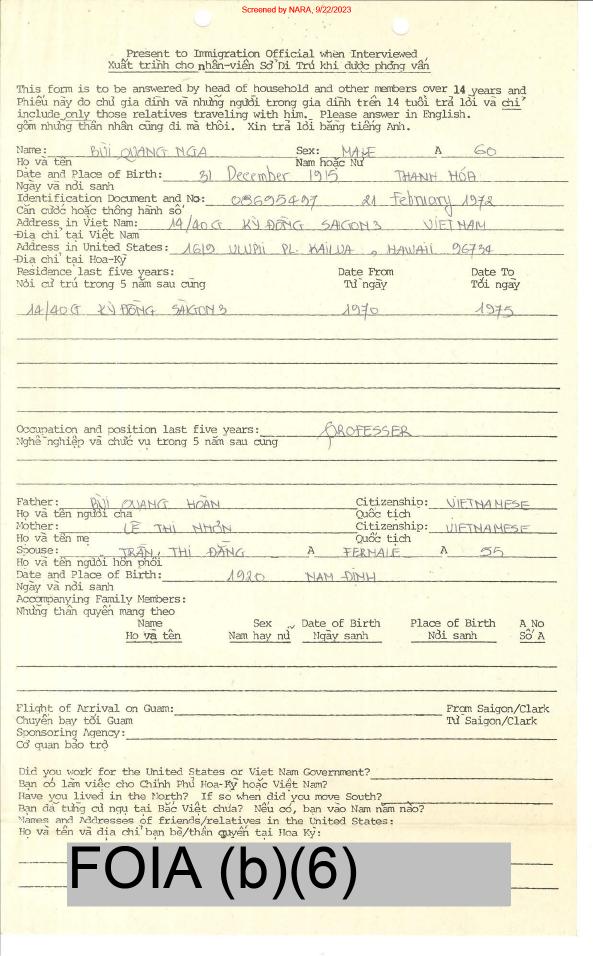 Screened by NARA, 9/22/2023
Present to Immigration Official when Interviewed
Xuất trình cho nhân-viên Sở Di Trú khi được phỏng vấn
This form is to be answered by head of household and other members over 14 years and
Phiếu này do chủ gia đình và những người trong gia đình trên 14 tuổi trả lời và chỉ
include only those relatives traveling with him. Please answer in English.
gồm những thân nhân cùng đi mà thôi. Xin trả lời bằng tiếng Anh.
Name: BÙI QUANG NGA Sex: MALE A 60
Họ và tên Nam hoặc Nữ
Date and Place of Birth: 31 December 1915 THANH HÓA
Ngày và nơi sanh
Identification Document and No: 03695497 21 February 1972
Căn cước hoặc thông hành số
Address in Viet Nam: 14/40G KỲ ĐỒNG SAIGON 3 VIETNAM
Địa chỉ tại Việt Nam
Address in United States: 1619 ULUPII PL. KAILUA, HAWAII 96734
Địa chỉ tại Hoa-Kỳ
Residence last five years: Date From Date To
Nơi cư trú trong 5 năm sau cùng Từ ngày Tới ngày
14/40G KỲ ĐỒNG SAIGON 3 1970 1975
Occupation and position last five years: PROFESSER
Nghề nghiệp và chức vụ trong 5 năm sau cùng
Father: BÙI QUANG HOÀN Citizenship: VIETNAMESE
Họ và tên người cha Quốc tịch
Mother: LÊ THỊ NHƠN Citizenship: VIETNAMESE
Họ và tên mẹ Quốc tịch
Spouse: TRẦN, THỊ ĐĂNG A FERMALE A 55
Họ và tên người hôn phối
Date and Place of Birth: 1920 NAM ĐỊNH
Ngày và nơi sanh
Accompanying Family Members:
Những thân quyến mang theo
Name Sex Date of Birth Place of Birth A No
Họ và tên Nam hay nữ Ngày sanh Nơi sanh Số A
Flight of Arrival on Guam: From Saigon/Clark
Chuyến bay tới Guam Từ Saigon/Clark
Sponsoring Agency:
Cơ quan bảo trợ
Did you work for the United States or Viet Nam Government?
Bạn có làm việc cho Chính Phủ Hoa-Kỳ hoặc Việt Nam?
Have you lived in the North? If so when did you move South?
Bạn đã từng cư ngụ tại Bắc Việt chưa? Nếu có, bạn vào Nam năm nào?
Names and Addresses of friends/relatives in the United States:
Họ và tên và địa chỉ bạn bè/thân quyến tại Hoa Kỳ:
FOIA (b)(6)